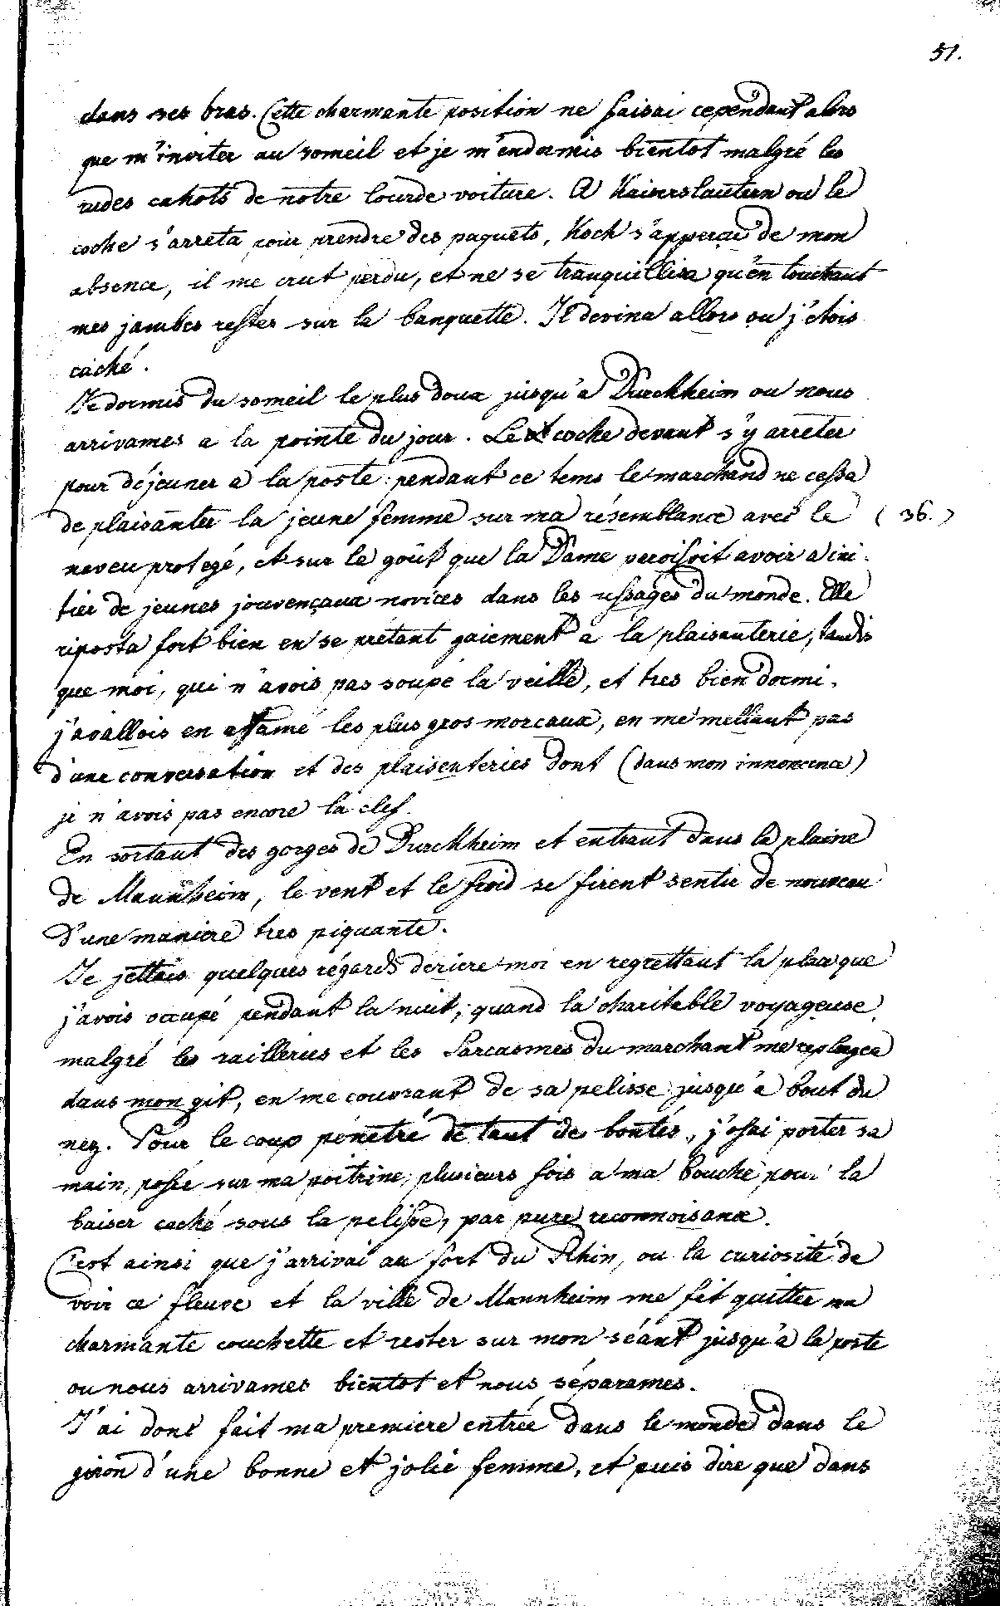 51.
dans ses bras. Cette charmante position ne faisai cependant alors
que m'inviter au someil et je m'endormis bientot malgré les
rudes cahots de notre lourde voiture. A Kaiserslautern ou le
coche s'arreta pour prendre des paquets, Koch s'apperçu de mon
absence, il me crut perdu, et ne se tranquillisa qu'en touchant
mes jambes restés sur la banquette. Il devina allors ou j'etois
caché.
Je dormis du someil le plus doux jusqu'a Durckheim ou nous
arrivames a la pointe du jour. Le coche devant s'y arreter
pour déjeuner a la poste pendant ce tems le marchand ne cessa
de plaisanter la jeune femme sur ma résemblance avec le (36.)
neveu protegé, et sur le goût que la Dame paroissoit avoir a ini-
tier de jeunes jouvençaux novices dans les ussages du monde. Elle
riposta fort bien en se pretant gaiement a la plaisanterie, tandis
que moi, qui n'avois pas soupé la veille, et tres bien dormi,
j'avallois en affamé les plus gros morcaux, en me mellant pas
d'une conversation et des plaisenteries dont (dans mon innoncence)
je n'avois pas encore la clef.
En sortant des gorges de Durckheim et entrant dans la plaine
de Mannheim, le vent et le froid se firent sentir de nouveau
d'une maniere tres piquante.
Je jettais quelques régards deriere moi en regrettant la place que
j'avois occupé pendant la nuit, quand la charitable voyageuse,
malgré les railleries et les sarcasmes du marchant me replaçea
dans mon git, en me couvrant de sa pelisse jusqu'a bout du
nez. Pour le coup pénétré de tant de bontés, j'osai porter sa
main, posée sur ma poitrine, plusieurs fois a ma bouche, pour la
baiser caché sous la pelisse, par pure reconnoisance.
C'est ainsi que j'arrivai au fort du Rhin, ou la curiosité de
voir ce fleuve et la ville de Mannheim me fit quitter ma
charmante couchette et rester sur mon séant jusqu'a la poste
ou nous arrivames bientot et nous séparames.
J'ai dont fait ma premiere entrée dans le monde dans le
giron d'une bonne et jolie femme, et puis dire que dans